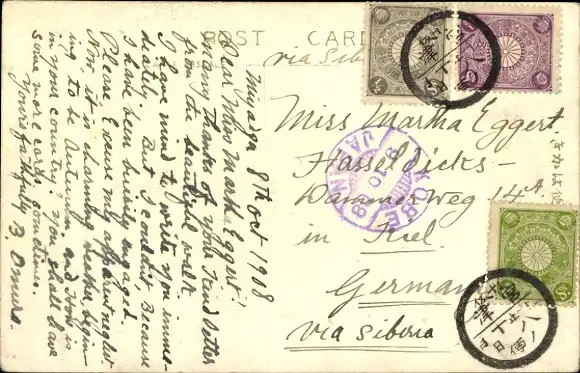 POST CARD
via Siberia
Miyadzu 8th Oct 1908
Dear Miss Martha Eggert!
Many thanks of your kind letter
from the beautiful walk.
I have mind to write you imme-
diately. But I couldn't, because
I have been busily engaged.
Please excuse my apparent neglect
Now it is charming weather, begin-
ing to be Autumn, and how is
in your country. You shall have
some more cards sometimes.
Yours faithfully B. Omura.
Miss Martha Eggert.
Hasseldicks-
Dammer Weg 14A
in Kiel.
Germany
via Siberia
きかは便
KOBE
JAPAN
10
8